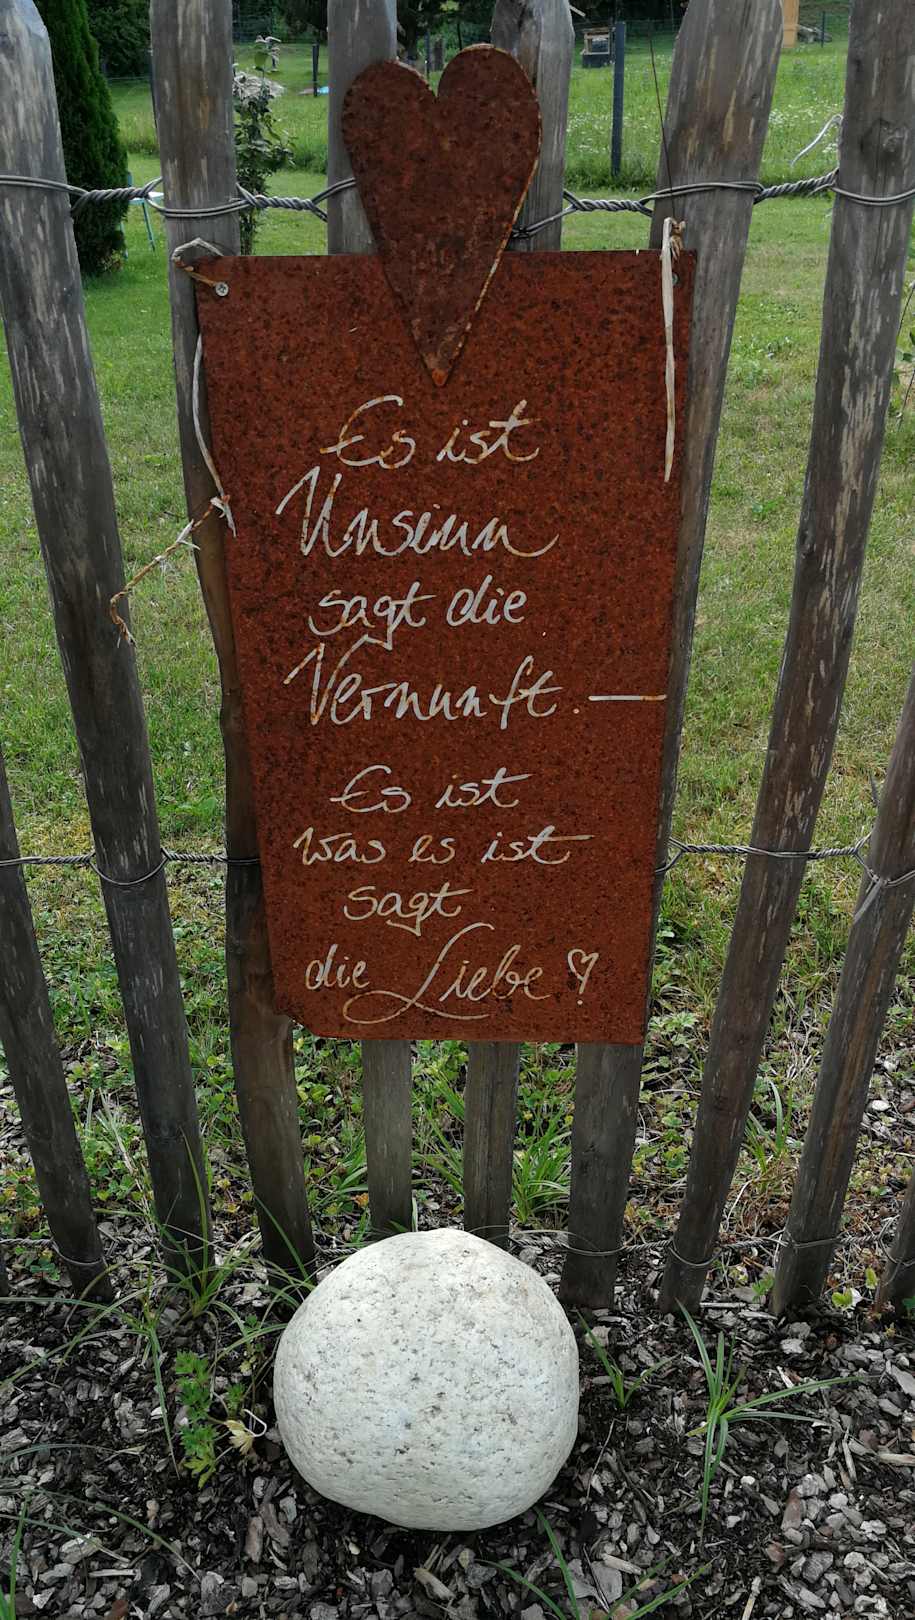 Es ist
Unsinn
sagt die
Vernunft. —
Es ist
was es ist
sagt
die Liebe ♡